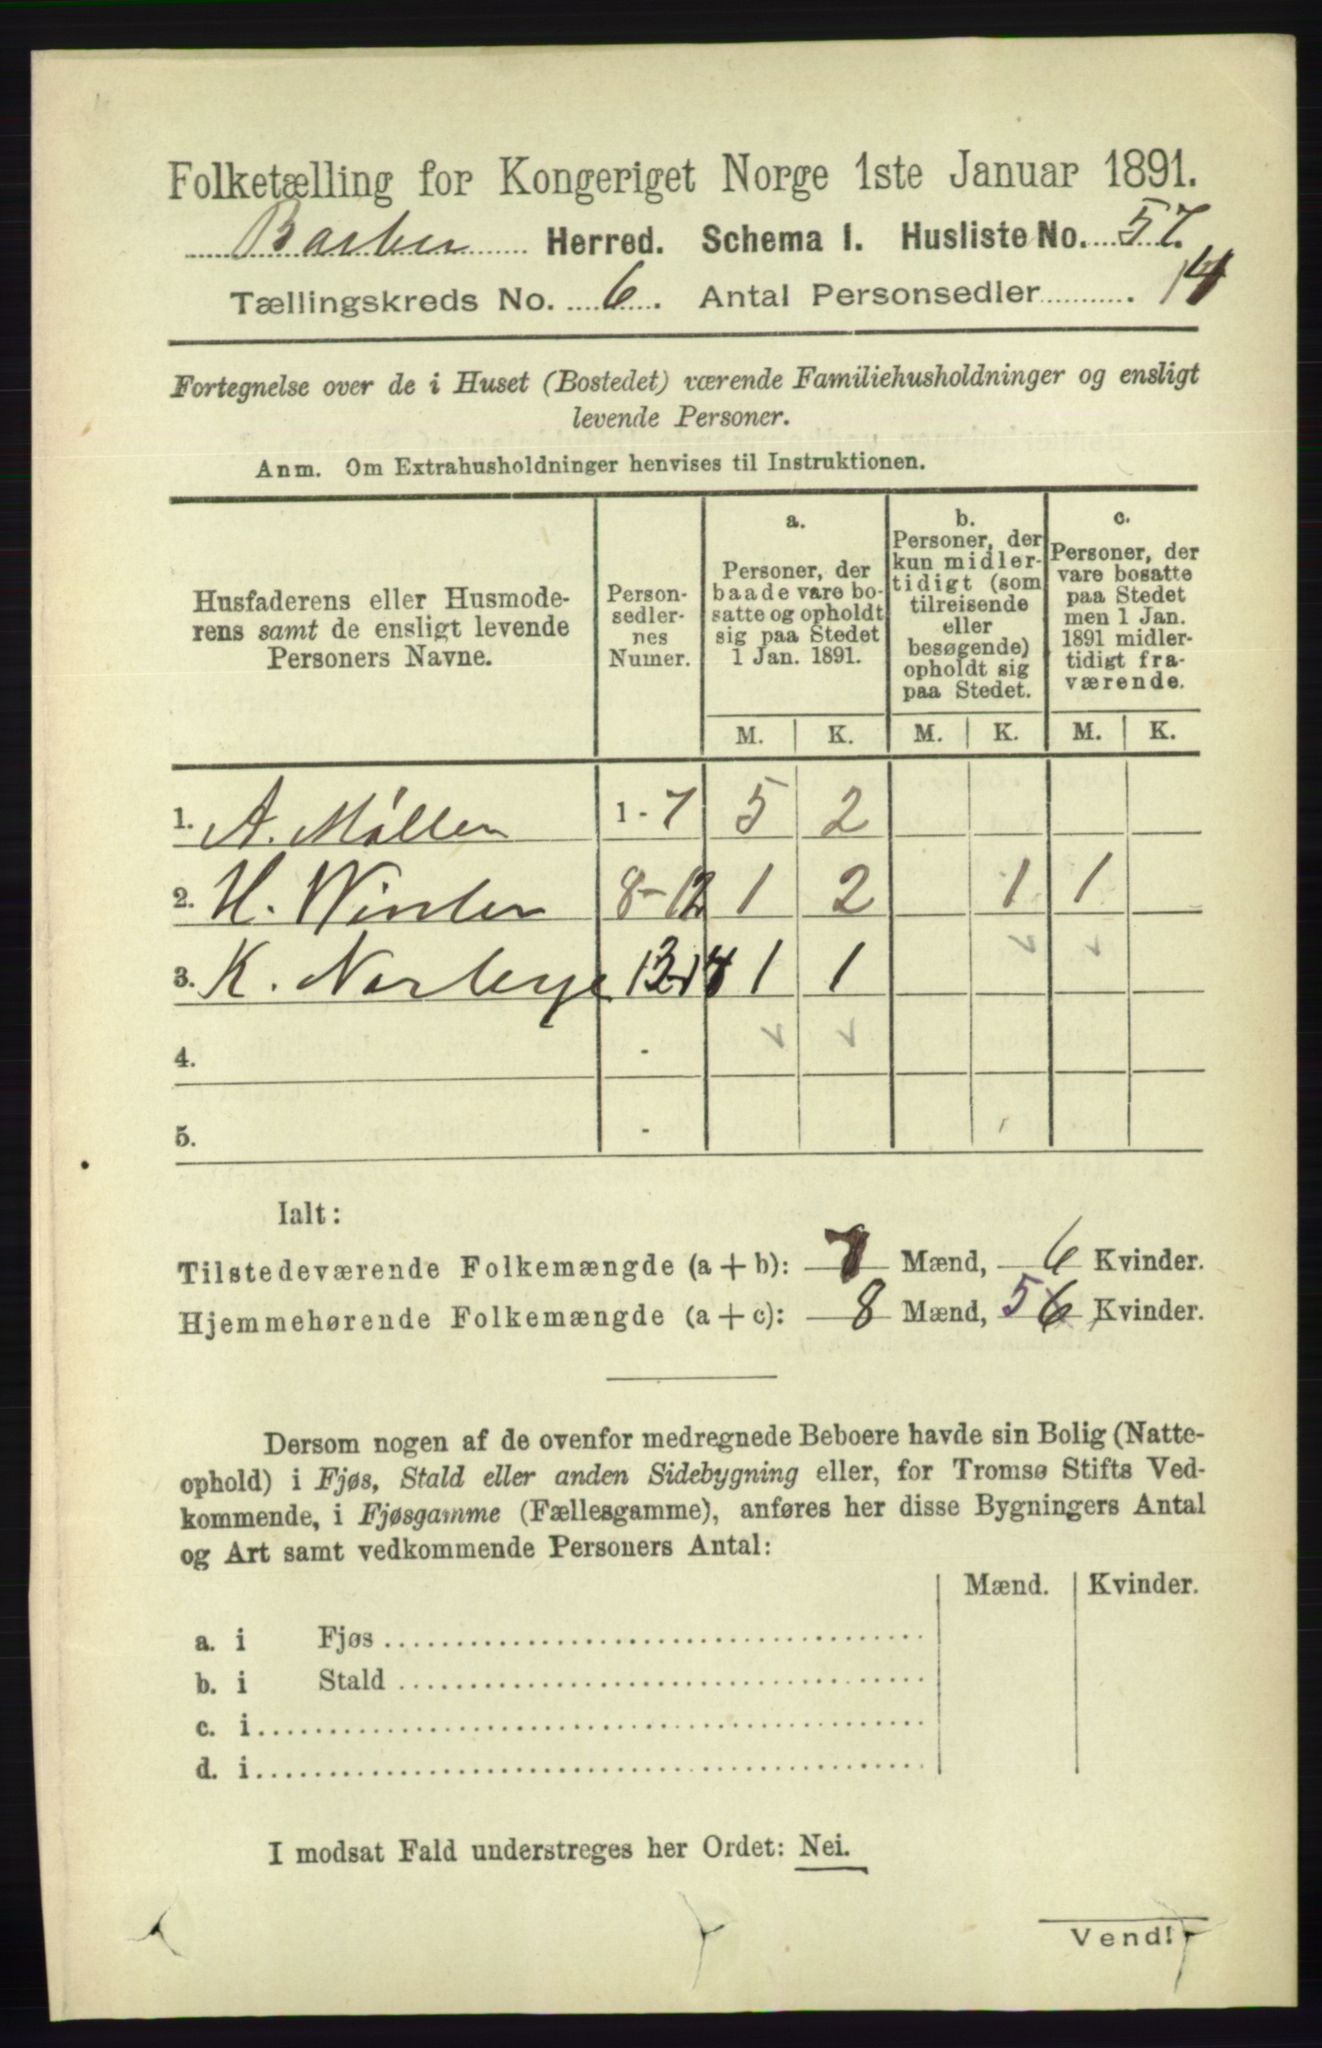 Folketælling for Kongeriget Norge 1ste Januar 1891.
Barbu Herred. Schema I. Husliste No. 57.
Tællingskreds No. 6. Antal Personsedler . 14
Fortegnelse over de i Huset (Bostedet) værende Familiehusholdninger og ensligt
levende Personer.
Anm. Om Extrahusholdninger henvises til Instruktionen.
Husfaderens eller Husmode-
rens samt de ensligt levende
Personers Navne.
Person-
sedler-
nes
Numer.
a.
Personer, der
baade vare bo-
satte og opholdt
sig paa Stedet
1 Jan. 1891.
b.
Personer, der
kun midler-
tidigt (som
tilreisende
eller
besøgende)
opholdt sig
paa Stedet.
c.
Personer, der
vare bosatte
paa Stedet
men 1 Jan.
1891 midler-
tidigt fra-
værende.
M. K. M. K. M. K.
1. A. Møller 1-7 5 2
2. H. Winter 8-12 1 2 1 1
3. K. Norbye 13-14 1 1
4. -
5. -
Ialt:
Tilstedeværende Folkemængde (a + b): 7 Mænd, 6 Kvinder.
Hjemmehørende Folkemængde (a + c): 8 Mænd, 5 6 Kvinder.
Dersom nogen af de ovenfor medregnede Beboere havde sin Bolig (Natte-
ophold) i Fjøs, Stald eller anden Sidebygning eller, for Tromsø Stifts Ved-
kommende, i Fjøsgamme (Fællesgamme), anføres her disse Bygningers Antal
og Art samt vedkommende Personers Antal:
Mænd. Kvinder.
a. i Fjøs
b. i Stald
c. i
d. i
I modsat Fald understreges her Ordet: Nei.
Vend!